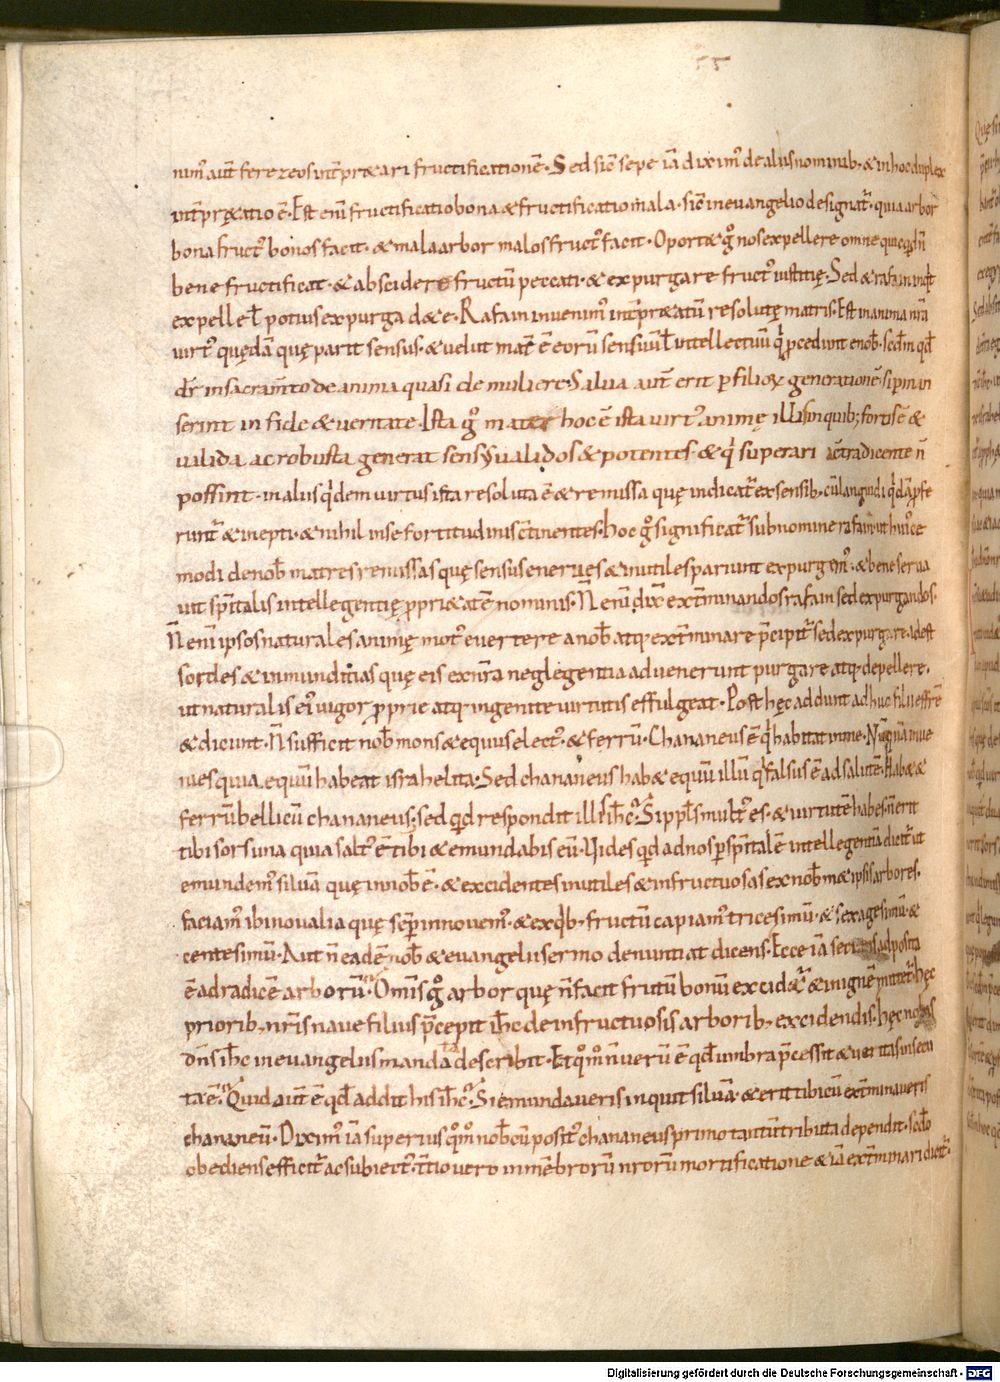 55
nim' aut ferezeos int̄p̄&ari fructificationē. Sed sic̄ sepe iā dixim' de aliis nominib; & in hoc duplex
int̄pr&atio ē. Est eni fructificatio bona & fructificatio mala. sic̄ in evangelio designat̄. quia arbor
bona fruct' bonos facit. & mala arbor malos fruct' facit. Oport& g° nos expellere omne quicqd n̄
bene fructificat. & abscidere fructū peccati. & expurgare fruct' iustitię. Sed & rafain inqt
expelle ł potius expurga de &. Rafain invenim' int̄pr&atū resolutę matris. Est in anima nr̄a
uirt' quędā quę parit sensus. & velut mat̄ ē eorū sensuū ł intellectuū q' pcedunt e nob. scdm qd
dr̄ in sacram̄to de anima quasi de muliere. Salua aut̄ erit p filiox generationē. si pman
serint in fide & ueritate. Ista g° mater hoc ē ista uirt' animę illis inquib; fortis ē &
ualida ac robusta generat sensus ualidos & potentes. & q' superari a c̄tradicente n̄
possint. in aliis q'dem uirtus ista resoluta ē & remissa quę indicat̄ ex sensib; cū languidi q'dā pfe
runt̄ & inepti. & nihil in se fortitudinis c̄tinentes. Hoc g° significat̄ sub nomine rafain ut hui'ce
modi de nob matres remissas quę sensus eneruęs & inutiles pariunt expurgem'. & bene serua
uit spitalis intellegentię ppri&atē nominis. N̄ enī dix̄ ext̄minandos rafain sed expurgandos.
N̄ enī ipsos naturales animę mot' evertere a nob atq; ext̄minare p̄cipit̄ sed expurgare. id est
sordes & inmunditias quę eis ex nr̄a neglegentia advenerunt purgare atq; depellere.
ut naturalis ei' uigor pprie atq; ingenite uirtutis effulgeat. Post hęc addunt adhuc filii effrē
& dicunt. N̄ sufficit nob mons & equus elect'. & ferrū. Chananeus ē q' habitat in me. Nūquā inue
nies quia equū habeat israhelita. Sed chananeus hab& equū illū q' falsus ē ad salutē. Hab& &
ferrū bellicū chananeus; sed qd respondit illis ih̄c. Si ppłs mult' es. & uirtutē habes. n̄ erit
tibi sors una quia salt' ē tibi & emundabis eū. Vides qd ad nos p spitalē intellegentiā dicit̄ ut
emundem' siluā quę in nob ē. & excidentes inutiles & infructuosas ex nob m& ipsis arbores.
faciam' ibi novalia quę sep in novem'. & ex qb; fructū capiam' tricesimū. & sexagesimū. &
centesimū. Aut n̄ eadē nob & evangelii sermo denuntiat dicens. Ecce iā securis adposita
ē ad radicē arborū. Omnis g° arbor quę n̄ facit fructū bonū excid&ur. & in ignē mittet̄. hęc
priorib; nr̄is naue filius p̄cepit ih̄c de infructuosis arborib; excidendis. hęc nobis
dn̄s ih̄c in evangeliis mandata describit. Et qm° n̄ verū ē qd umbra p̄cessit & ueritas insecu
ta ē. Quid aut̄ ē qd addit his ih̄c. Si emundaveris inquit siluā. & erit tibi cū ext̄minaueris
chananeū. Diximi' iā superius qm° nob cūposit' chananeus primo tantū tributa dependit. scdo
obediens efficit̄ ac subiect'. t̄tio uero in mēbrorū nr̄orū mortificatione & iā ext̄minari dicit̄.
Digitalisierung gefördert durch die Deutsche Forschungsgemeinschaft - DFG